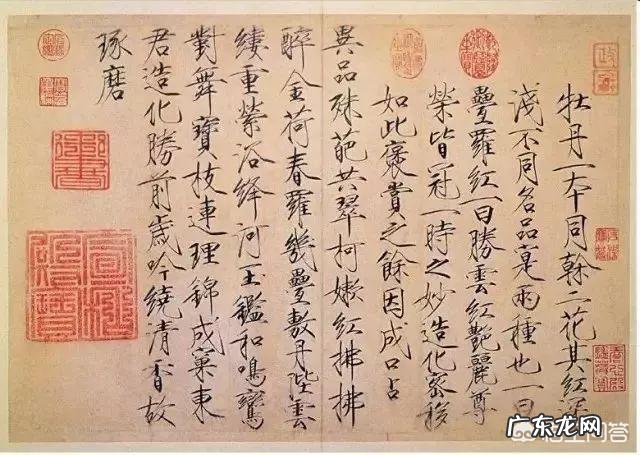 牡丹一本同榦二花其紅深
淺不同名品寔兩種也一曰
疊羅紅一曰勝雲紅艷麗尊
榮皆冠一時之妙造化密移
如此褒賞之餘因成口占
異品殊葩共翠柯嫩紅拂拂
醉金荷春羅幾疊敷丹陛雲
縷重縈浴絳河玉鑑和鳴鸞
對舞寶枝連理錦成窠東
君造化勝前歲吟繞清香故
琢磨
广东龙网